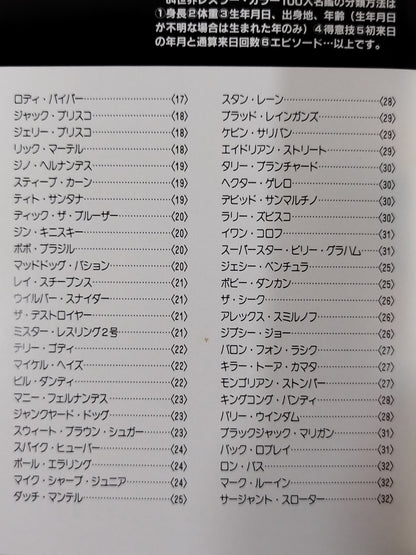 '84世界レスラー・カラー100人名鑑の分類方法は
①身長②体重③生年月日、出身地、年齢（生年月日
が不明な場合は生まれた年のみ）④得意技⑤初来日
の年月と通算来日回数⑥エピソード…以上です。
ロディ・パイパー〈17〉
ジャック・ブリスコ〈18〉
ジェリー・ブリスコ〈18〉
リック・マーテル〈18〉
ジノ・ヘルナンデス〈19〉
スティーブ・カーン〈19〉
ティト・サンタナ〈19〉
ディック・ザ・ブルーザー〈20〉
ジン・キニスキー〈20〉
ボボ・ブラジル〈20〉
マッドドッグ・バション〈20〉
レイ・スチーブンス〈21〉
ウイルバー・スナイダー〈21〉
ザ・デストロイヤー〈21〉
ミスター・レスリング2号〈21〉
テリー・ゴディ〈22〉
マイケル・ヘイズ〈22〉
ビル・ダンディ〈22〉
マニー・フェルナンデス〈23〉
ジャンクヤード・ドッグ〈23〉
スウィート・ブラウン・シュガー〈23〉
スパイク・ヒューバー〈24〉
ポール・エラリング〈24〉
マイク・シャープ・ジュニア〈24〉
ダッチ・マンテル〈25〉
スタン・レーン〈28〉
ブラッド・レインガンズ〈29〉
ケビン・サリバン〈29〉
エイドリアン・ストリート〈29〉
タリー・ブランチャード〈30〉
ヘクター・ゲレロ〈30〉
デビッド・サンマルチノ〈30〉
ラリー・ズビスコ〈30〉
イワン・コロフ〈31〉
スーパースター・ビリー・グラハム〈31〉
ジェシー・ベンチュラ〈25〉
ボビー・ダンカン〈25〉
ザ・シーク〈26〉
アレックス・スミルノフ〈26〉
ジプシー・ジョー〈26〉
バロン・フォン・ラシク〈27〉
キラー・トーア・カマタ〈27〉
モンゴリアン・ストンパー〈27〉
キングコング・バンディ〈28〉
バリー・ウインダム〈28〉
ブラックジャック・マリガン〈31〉
バック・ロブレイ〈31〉
ロン・バス〈32〉
マーク・ルーイン〈32〉
サージャント・スローター〈32〉